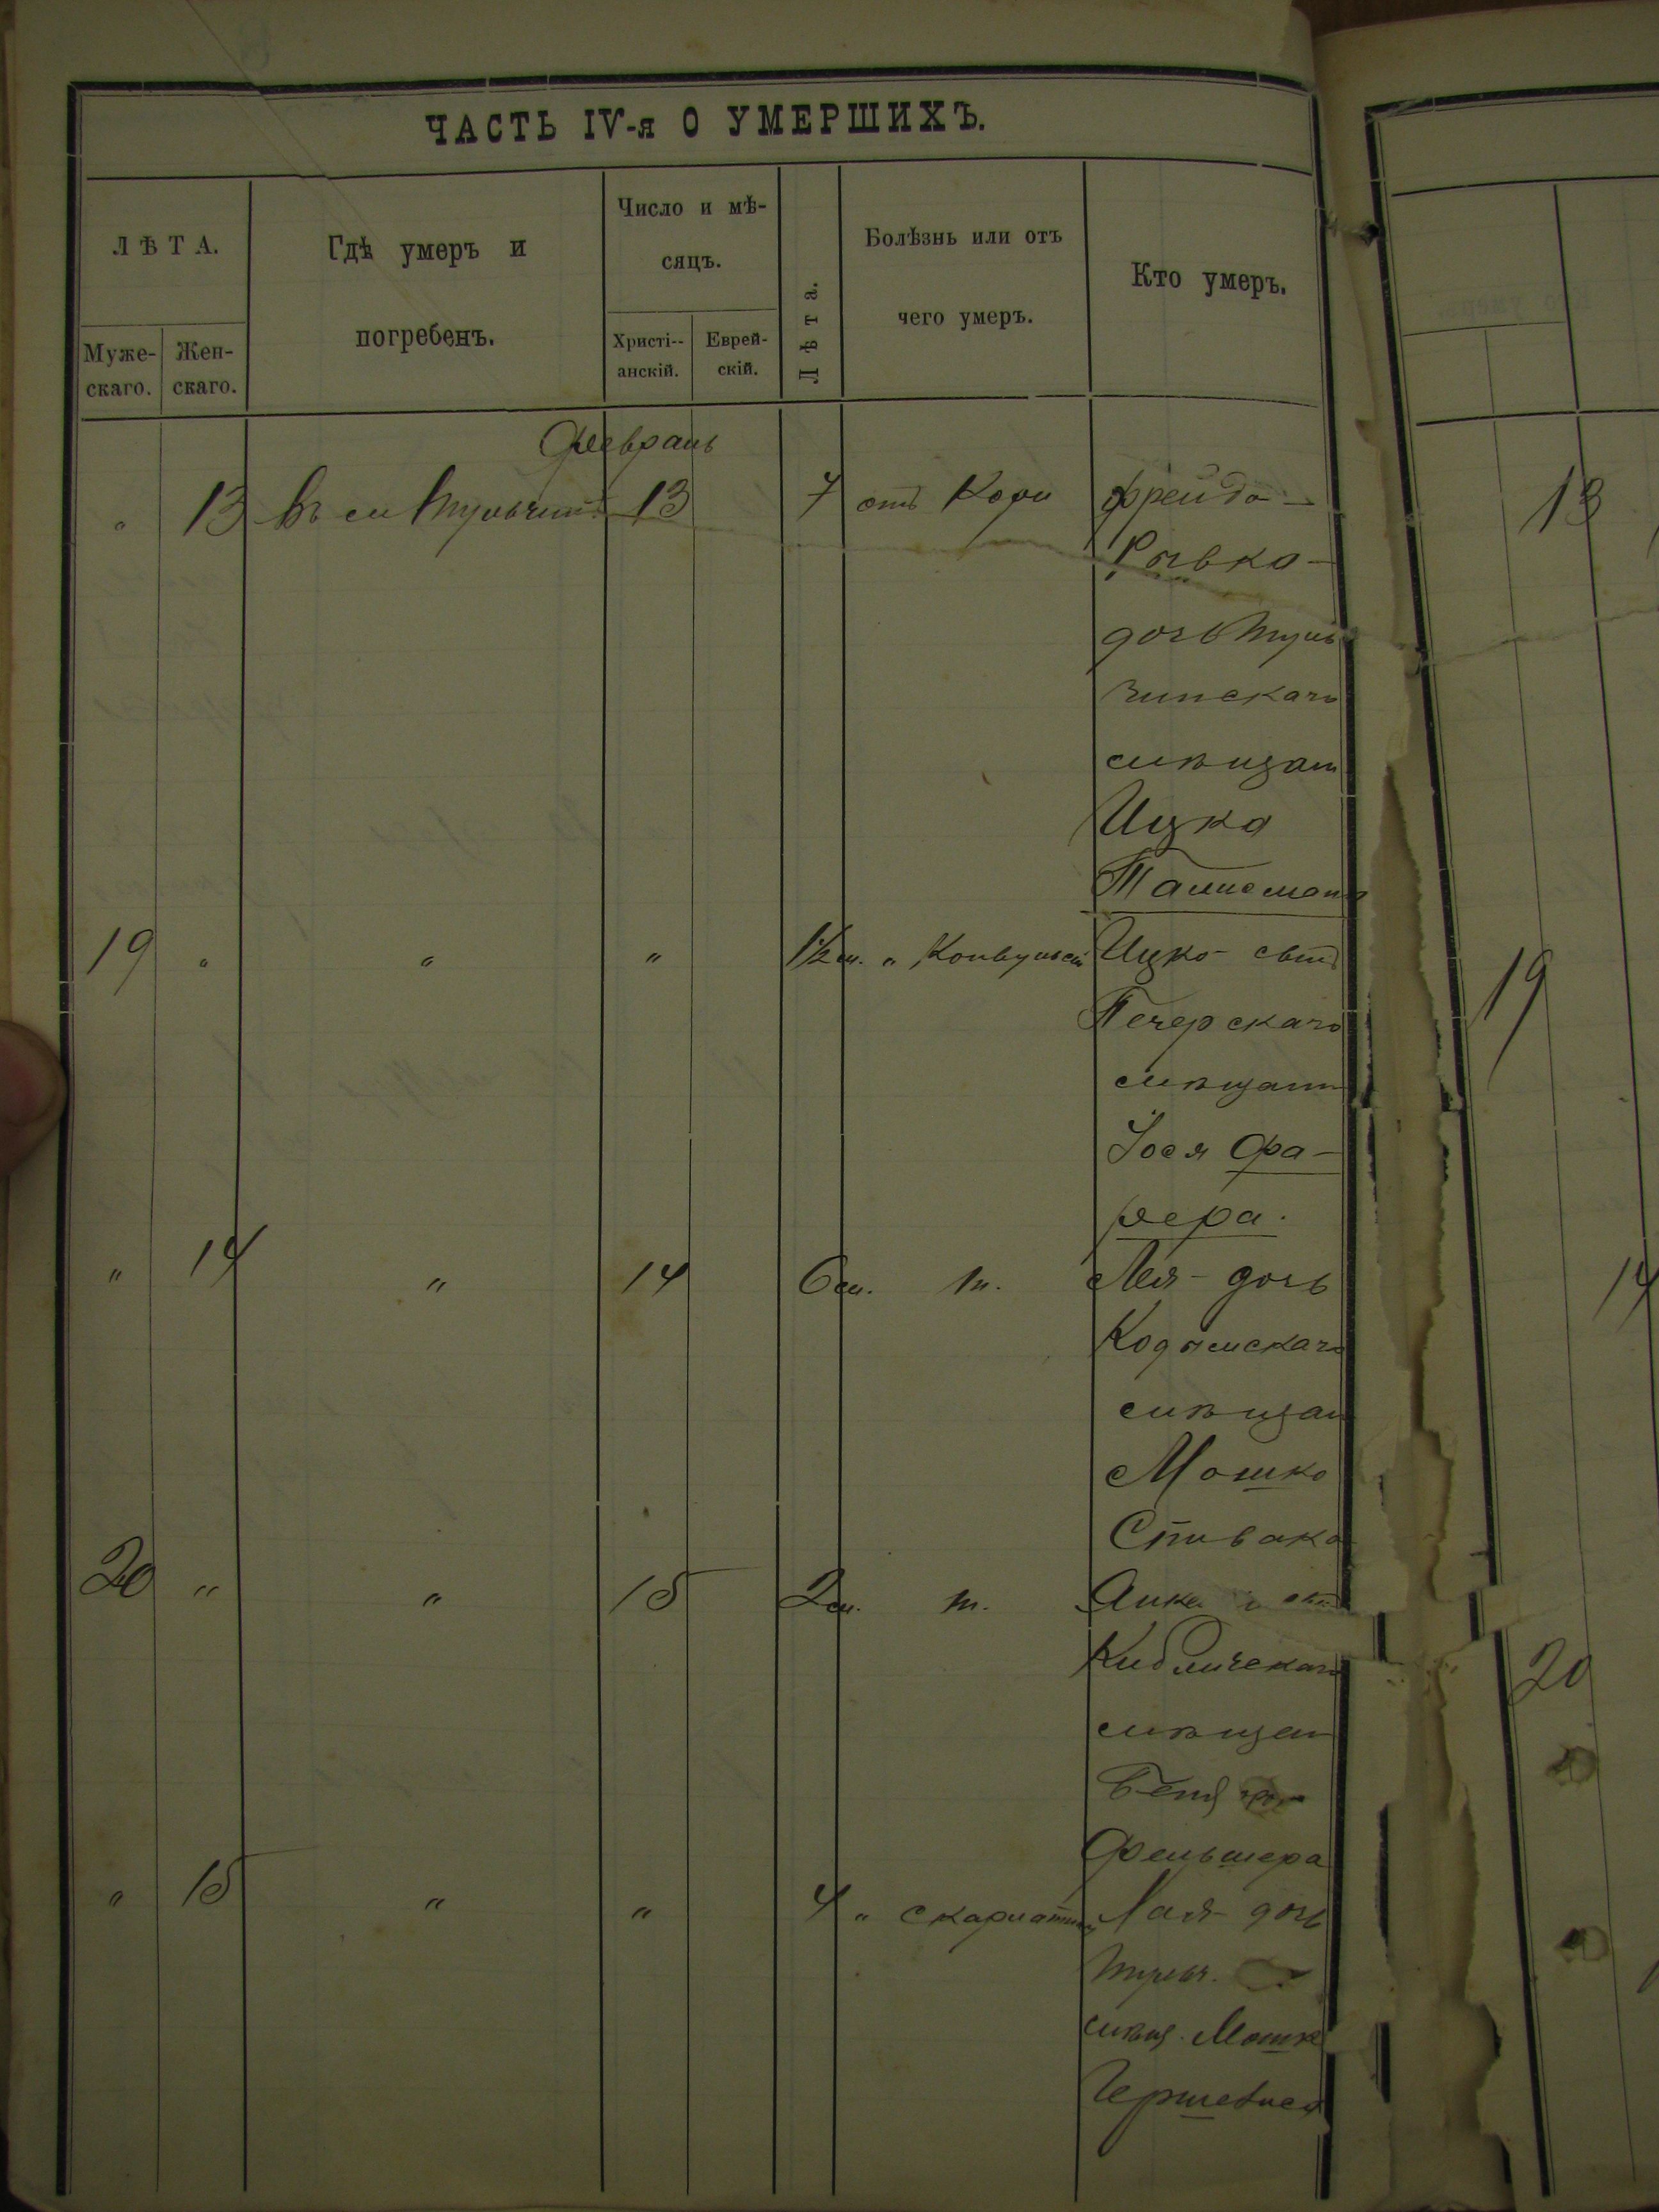 ЧАСТЬ IV-я О УМЕРШИХЪ.
ЛѢТА.
Муже-
скаго.
Жен-
скаго.
Гдѣ умеръ и
погребенъ.
Число и мѣ-
сяцъ.
Христі--
анскій.
Еврей-
скій.
Лѣта.
Болѣзнь или отъ
чего умеръ.
Кто умеръ.
Февраль
" 13 въ м Тульчинѣ 13 7 отъ Кори Фрейда -
Рывка -
дочь Туль
чинскаго
мѣщан
Ицка
Талисмана
19 " " " 1½ м. " Конвульсій Ицко - сынъ
Печерскаго
мѣщани
Іося Фа-
рера.
" 14 " 14 6 м. т. Лея - дочь
Кодымскаго
мѣщан
Мошко
Спивака
20 " " 15 2 м. т. сынъ
Кибличскаго
мѣщан
Фельшера
" 15 " " 4 " скарлатины дочь
Тульч.
мѣщ. Мошко
13
19
14
20